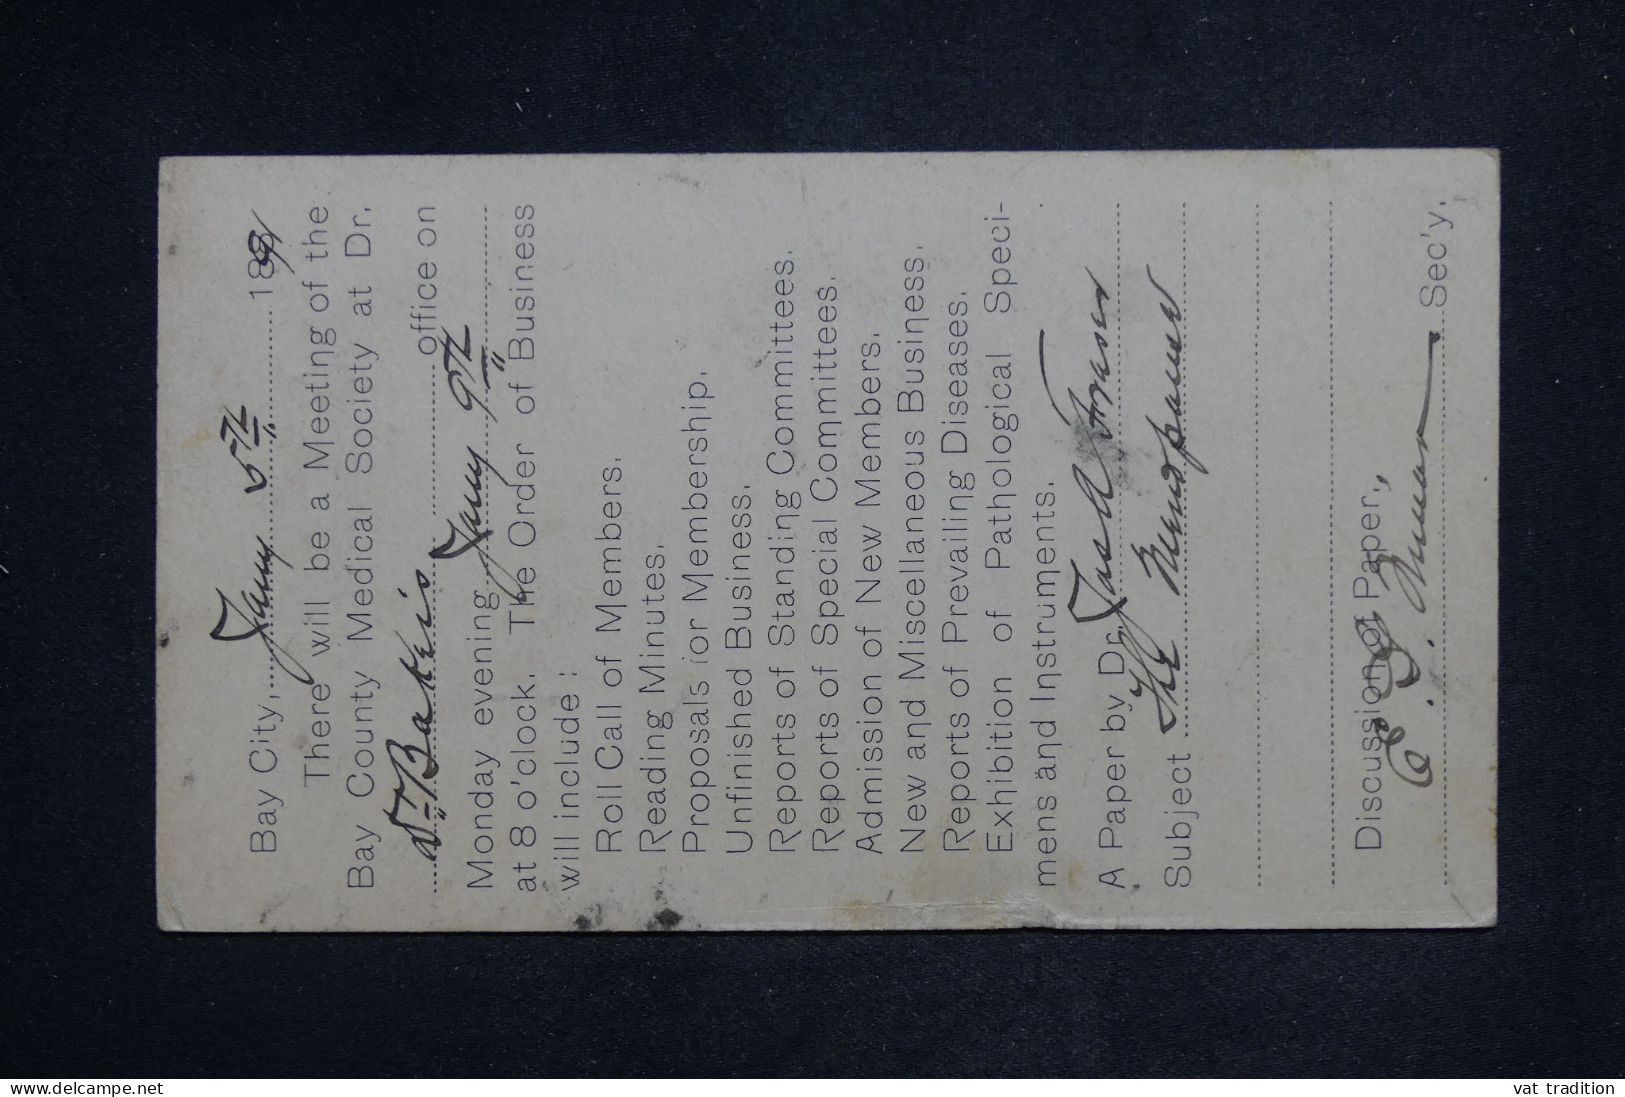 Bay City, Jany 5th 1891
There will be a Meeting of the
Bay County Medical Society at Dr.
Dr Baker's office on
Monday evening Jany 9th
at 8 o'clock. The Order of Business
will include:
Roll Call of Members.
Reading Minutes.
Proposals for Membership.
Unfinished Business.
Reports of Standing Committees.
Reports of Special Committees.
Admission of New Members.
New and Miscellaneous Business.
Reports of Prevailing Diseases.
Exhibition of Pathological Speci-
mens and Instruments.
A Paper by Dr.
Subject The Menopause
Discussion of Paper.
Sec'y.
www.delcampe.net
vat tradition